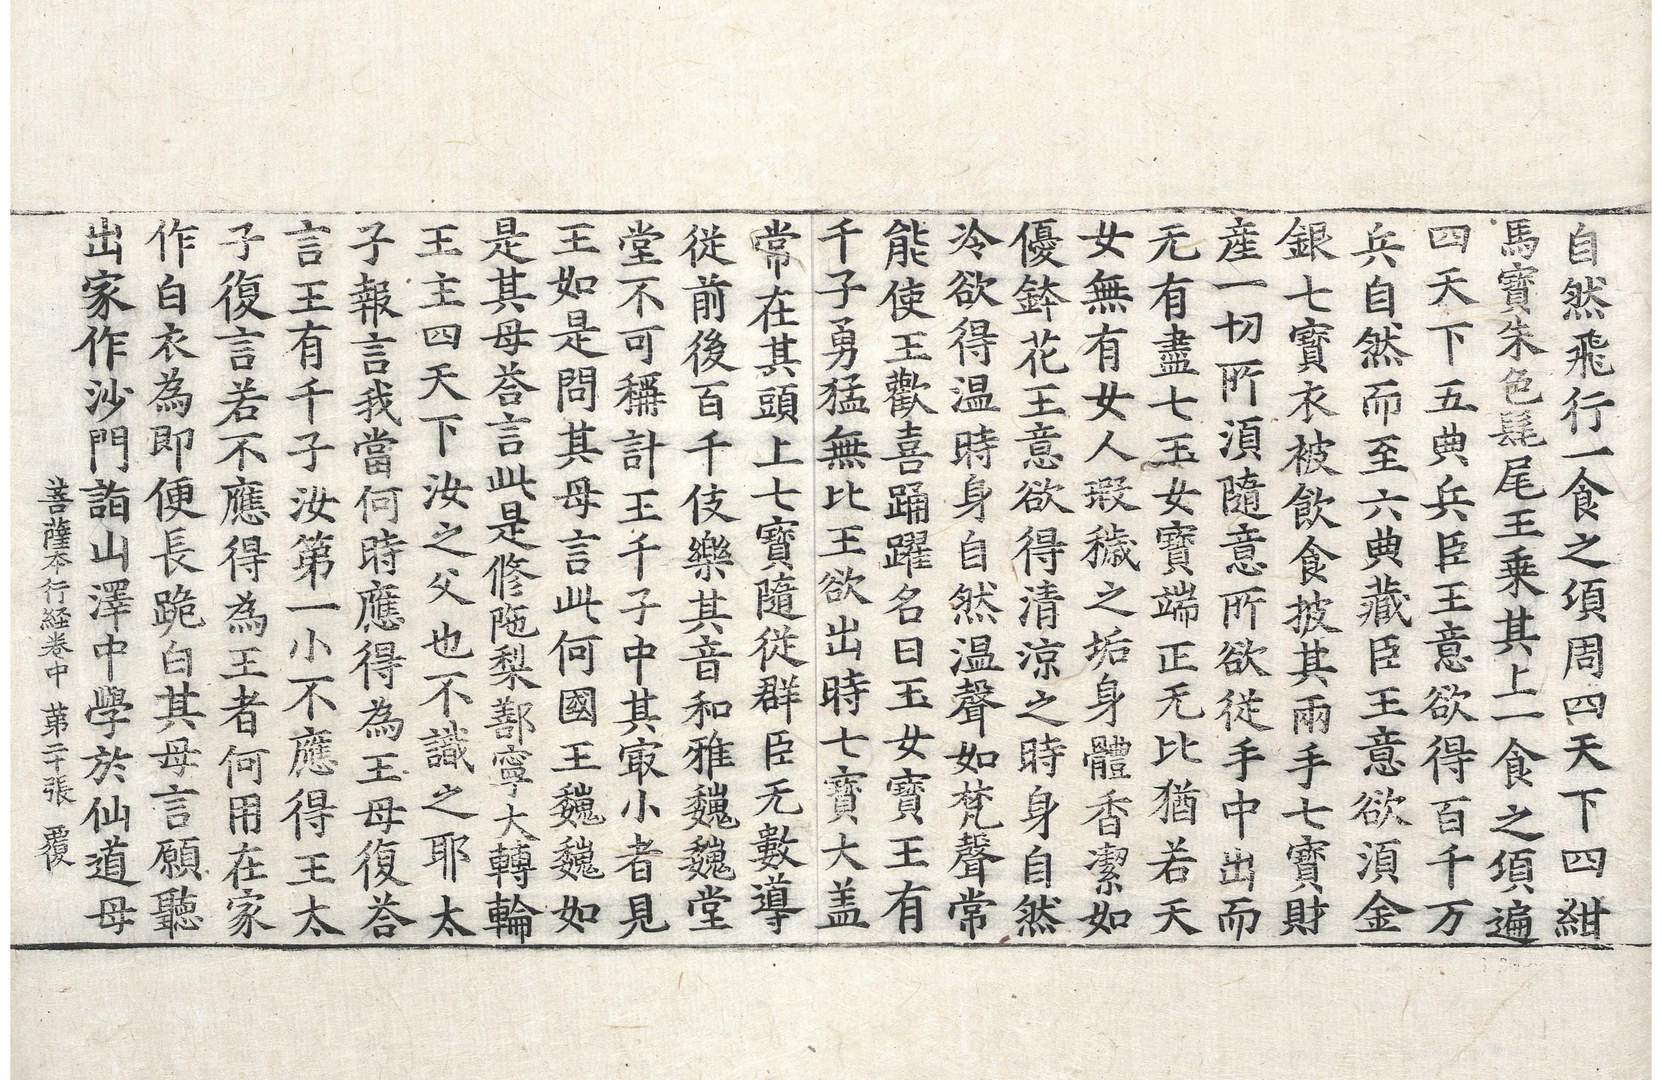 自然飛行一食之頃周四天下四紺
馬寶朱色髦尾王乗其上一食之頃遍
四天下五典兵臣王意欲得百千万
兵自然而至六典藏臣王意欲湏金
銀七寶衣被飲食披其兩手七寶財
産一切所湏隨意所欲従手中出而
无有盡七玉女寶端正无比猶若天
女無有女人瑕穢之垢身體香潔如
優鉢花王意欲得清涼之時身自然
冷欲得温時身自然温聲如梵聲常
能使王歡喜踊躍名曰玉女寶王有
千子勇猛無比王欲出時七寶大盖
常在其頭上七寶隨従群臣无數導
従前後百千伎樂其音和雅巍巍堂
堂不可稱計王千子中其㝡小者見
王如是問其母言此何國王巍巍如
是其母荅言此是修陁梨鄯寧大轉輪
王主四天下汝之父也不識之耶太
子報言我當何時應得為王母復荅
言王有千子汝第一小不應得王太
子復言若不應得為王者何用在家
作白衣為即便長跪白其母言願聽
出家作沙門詣山澤中學於仙道母
菩薩夲行経卷中 苐二十張 覆